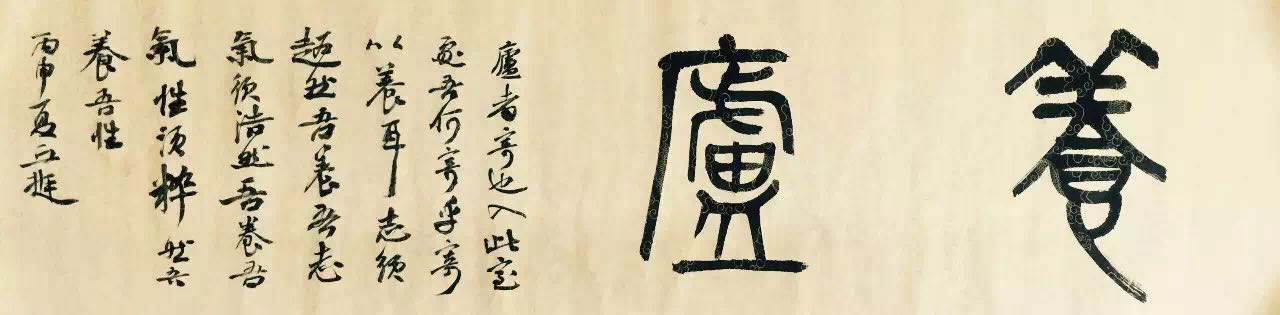 養
廬
廬者寄也入此室
處吾何寄乎寄
以養耳志須
超然吾養吾志
氣須浩然吾養吾
氣性須粹然吾
養吾性
丙申夏丘挺